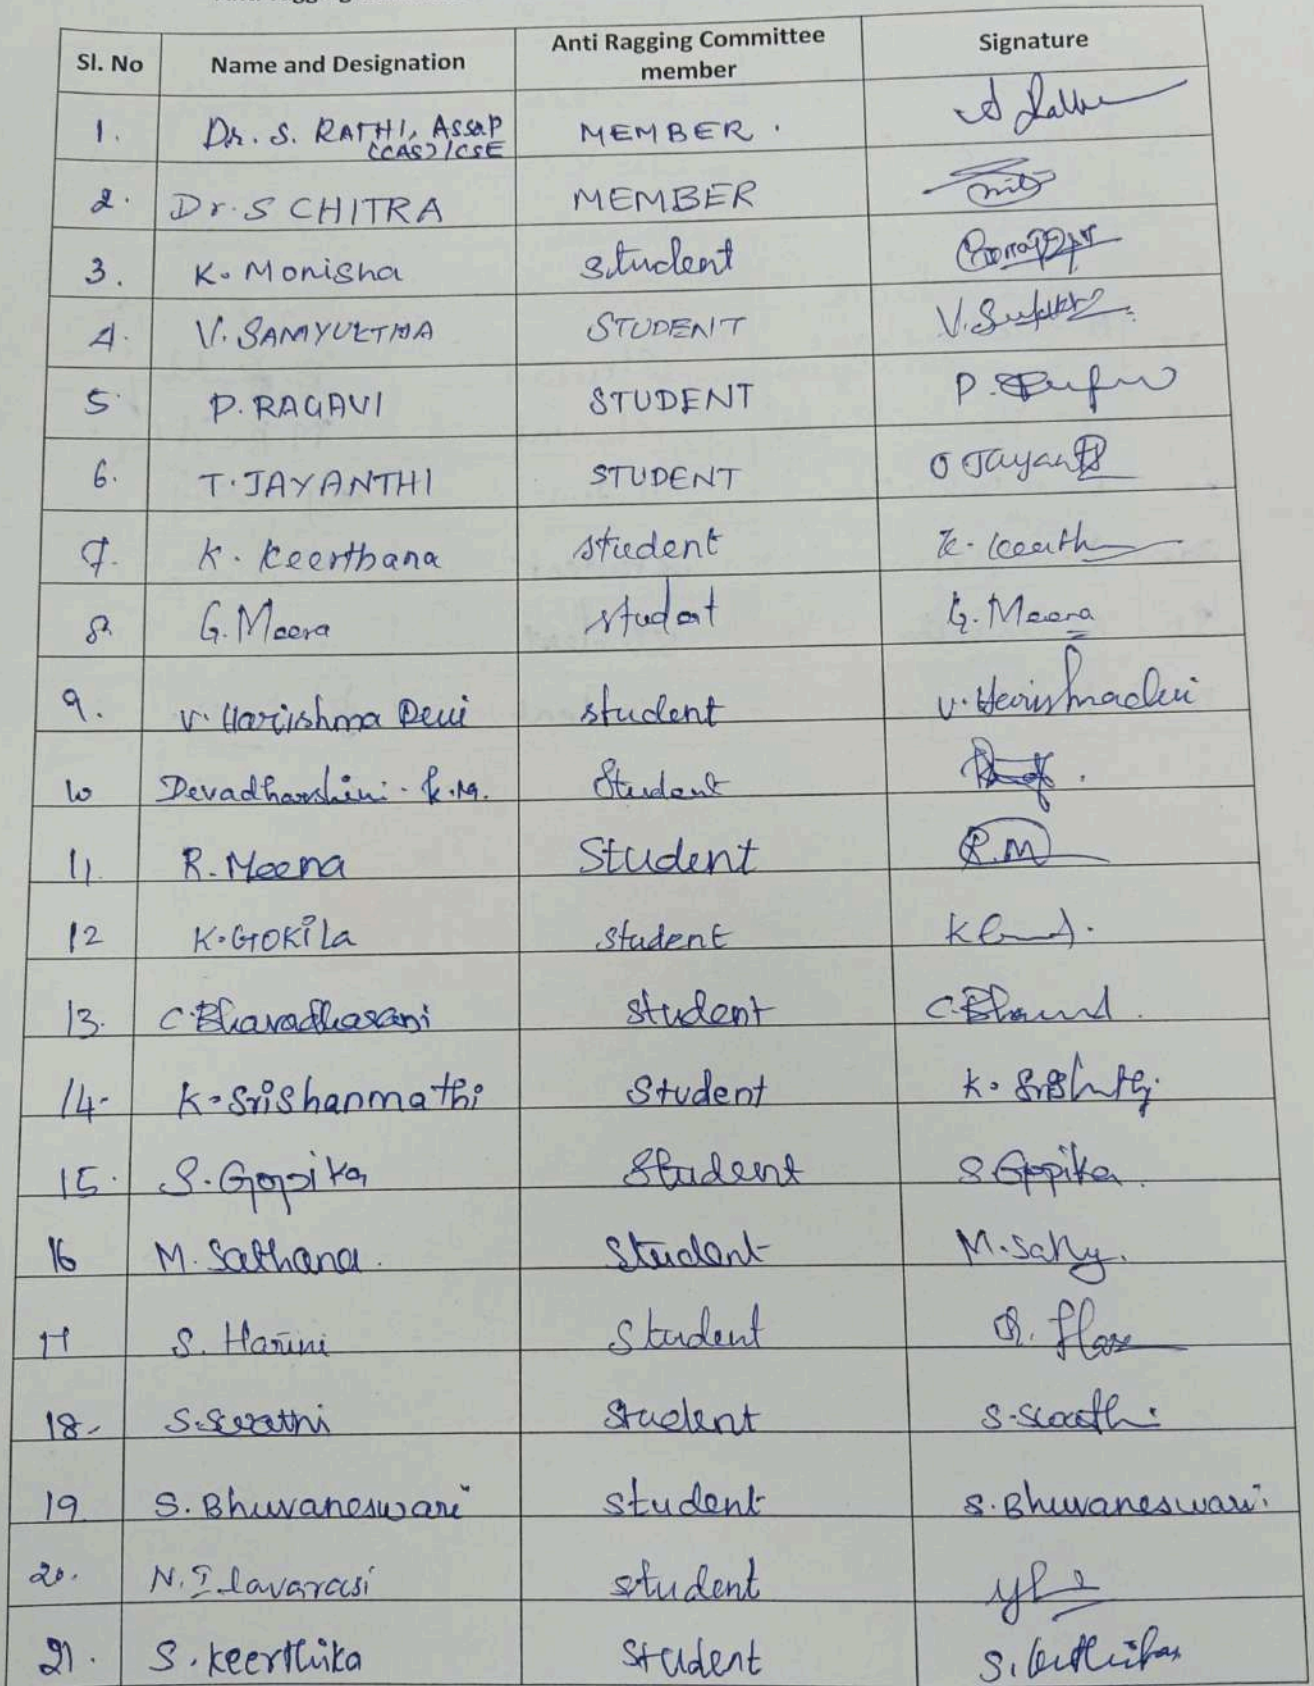 Sl. No Name and Designation Anti Ragging Committee member Signature
1. Dr. S. RATHI, AssoP (CAS)/CSE MEMBER.
2. Dr. S CHITRA MEMBER
3. K. Monisha Student
4. V. SAMYUKTHA STUDENT
5. P. RAGAVI STUDENT
6. T. JAYANTHI STUDENT
7. K. Keerthana student
8. G. Meera student G. Meera
9. V. Harishma Devi student V. Harishmadevi
10 Devadharshini. K.M. Student
11. R. Meena Student R.M
12 K. GOKila student
13. C. Bhavadharani student
14. K. SriShanmathi Student
15. S. Gopika Student S Gopika.
16 M. Sathana. Student
17 S. Harini Student
18. S. Swathi Student S. Swathi
19 S. Bhuvaneswari student S. Bhuvaneswari
20. N. Ilavarasi student
21. S. Keerthika Student